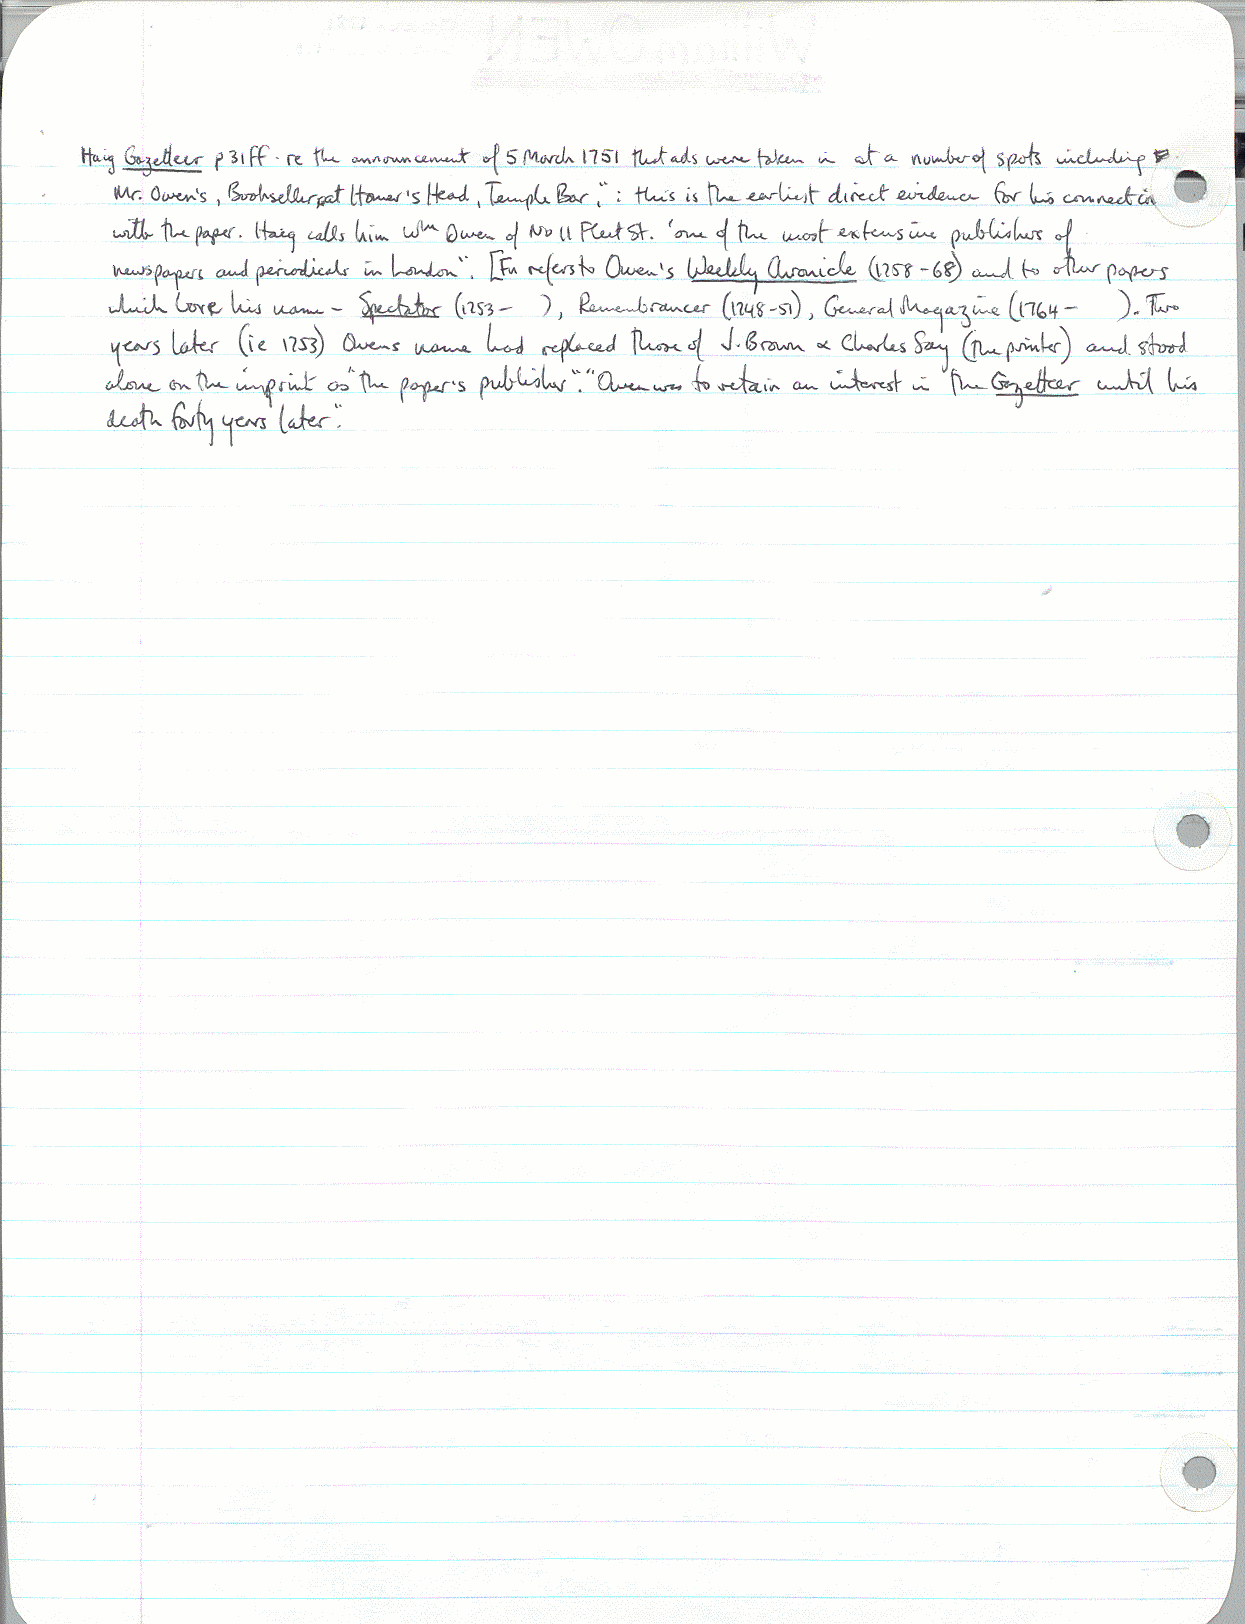 Haig Gazetteer p 31ff. re the announcement of 5 March 1751 that ads were taken in at a number of spots including
Mr. Owen's, Bookseller, at Homer's Head, Temple Bar,": this is the earliest direct evidence for his connection
with the paper. Haig calls him Wm Owen of No 11 Fleet St. 'one of the most extensive publishers of
newspapers and periodicals in London". [Fn refers to Owen's Weekly Chronicle (1758-68) and to other papers
which bore his name – Spectator (1753- ), Remembrancer (1748-51), General Magazine (1764- ). Two
years later (ie 1753) Owens name had replaced those of J. Brown & Charles Say (the printer) and stood
alone on the imprint as "the paper's publisher". "Owen was to retain an interest in the Gazetteer until his
death forty years later".